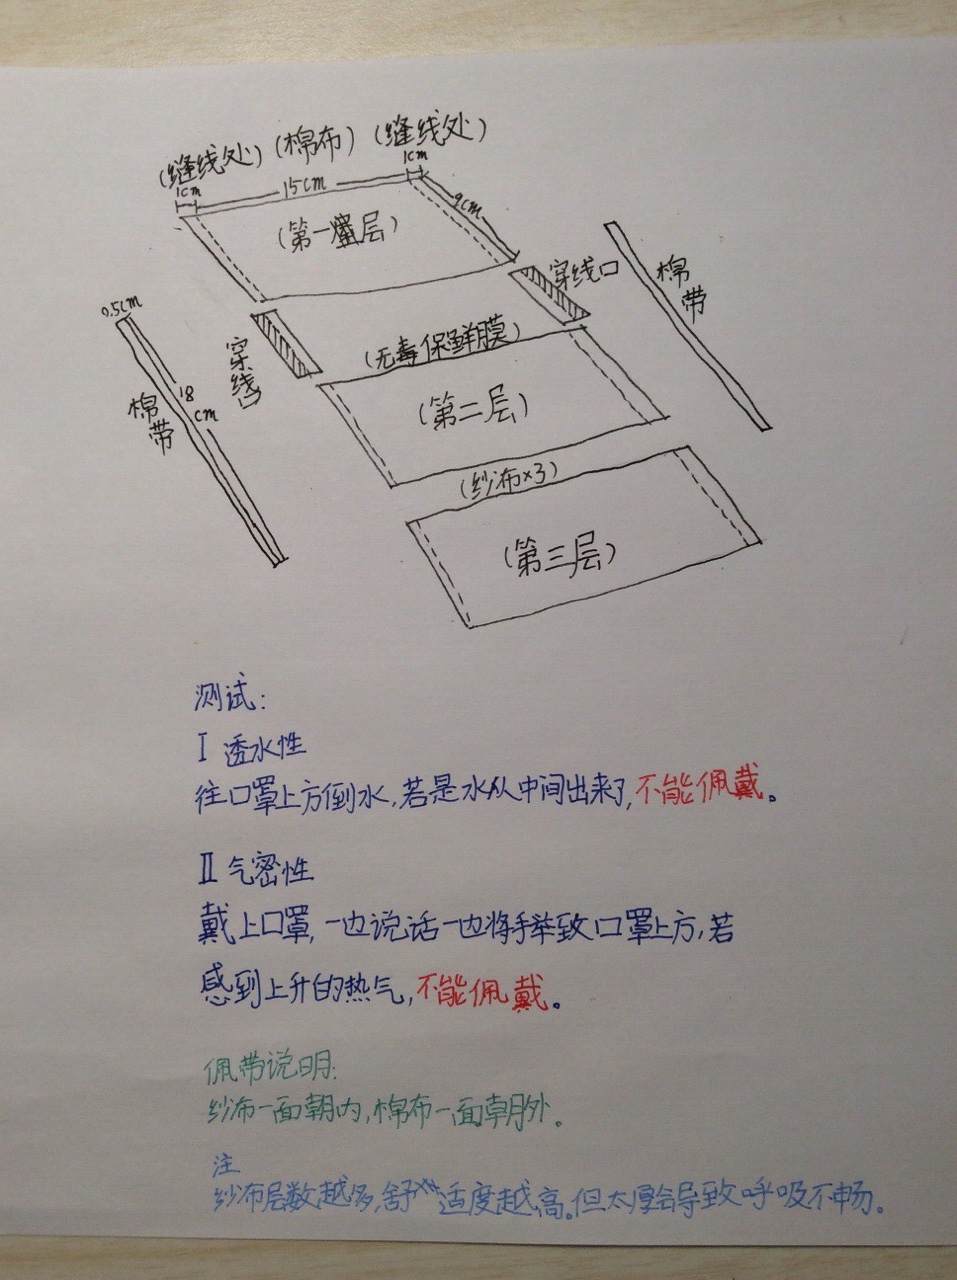 (缝线处) (棉布) (缝线处)
1cm 15cm 1cm
9cm
(第一层)
穿线口
棉带
0.5cm
穿线口
(无毒保鲜膜)
18cm
棉带
(第二层)
(纱布×3)
(第三层)
测试:
I 透水性
往口罩上方倒水,若是水从中间出来了,不能佩戴。
II 气密性
戴上口罩,一边说话一边将手举致口罩上方,若
感到上升的热气,不能佩戴。
佩带说明:
纱布一面朝内,棉布一面朝外。
注
纱布层数越多,舒适度越高。但太厚会导致呼吸不畅。